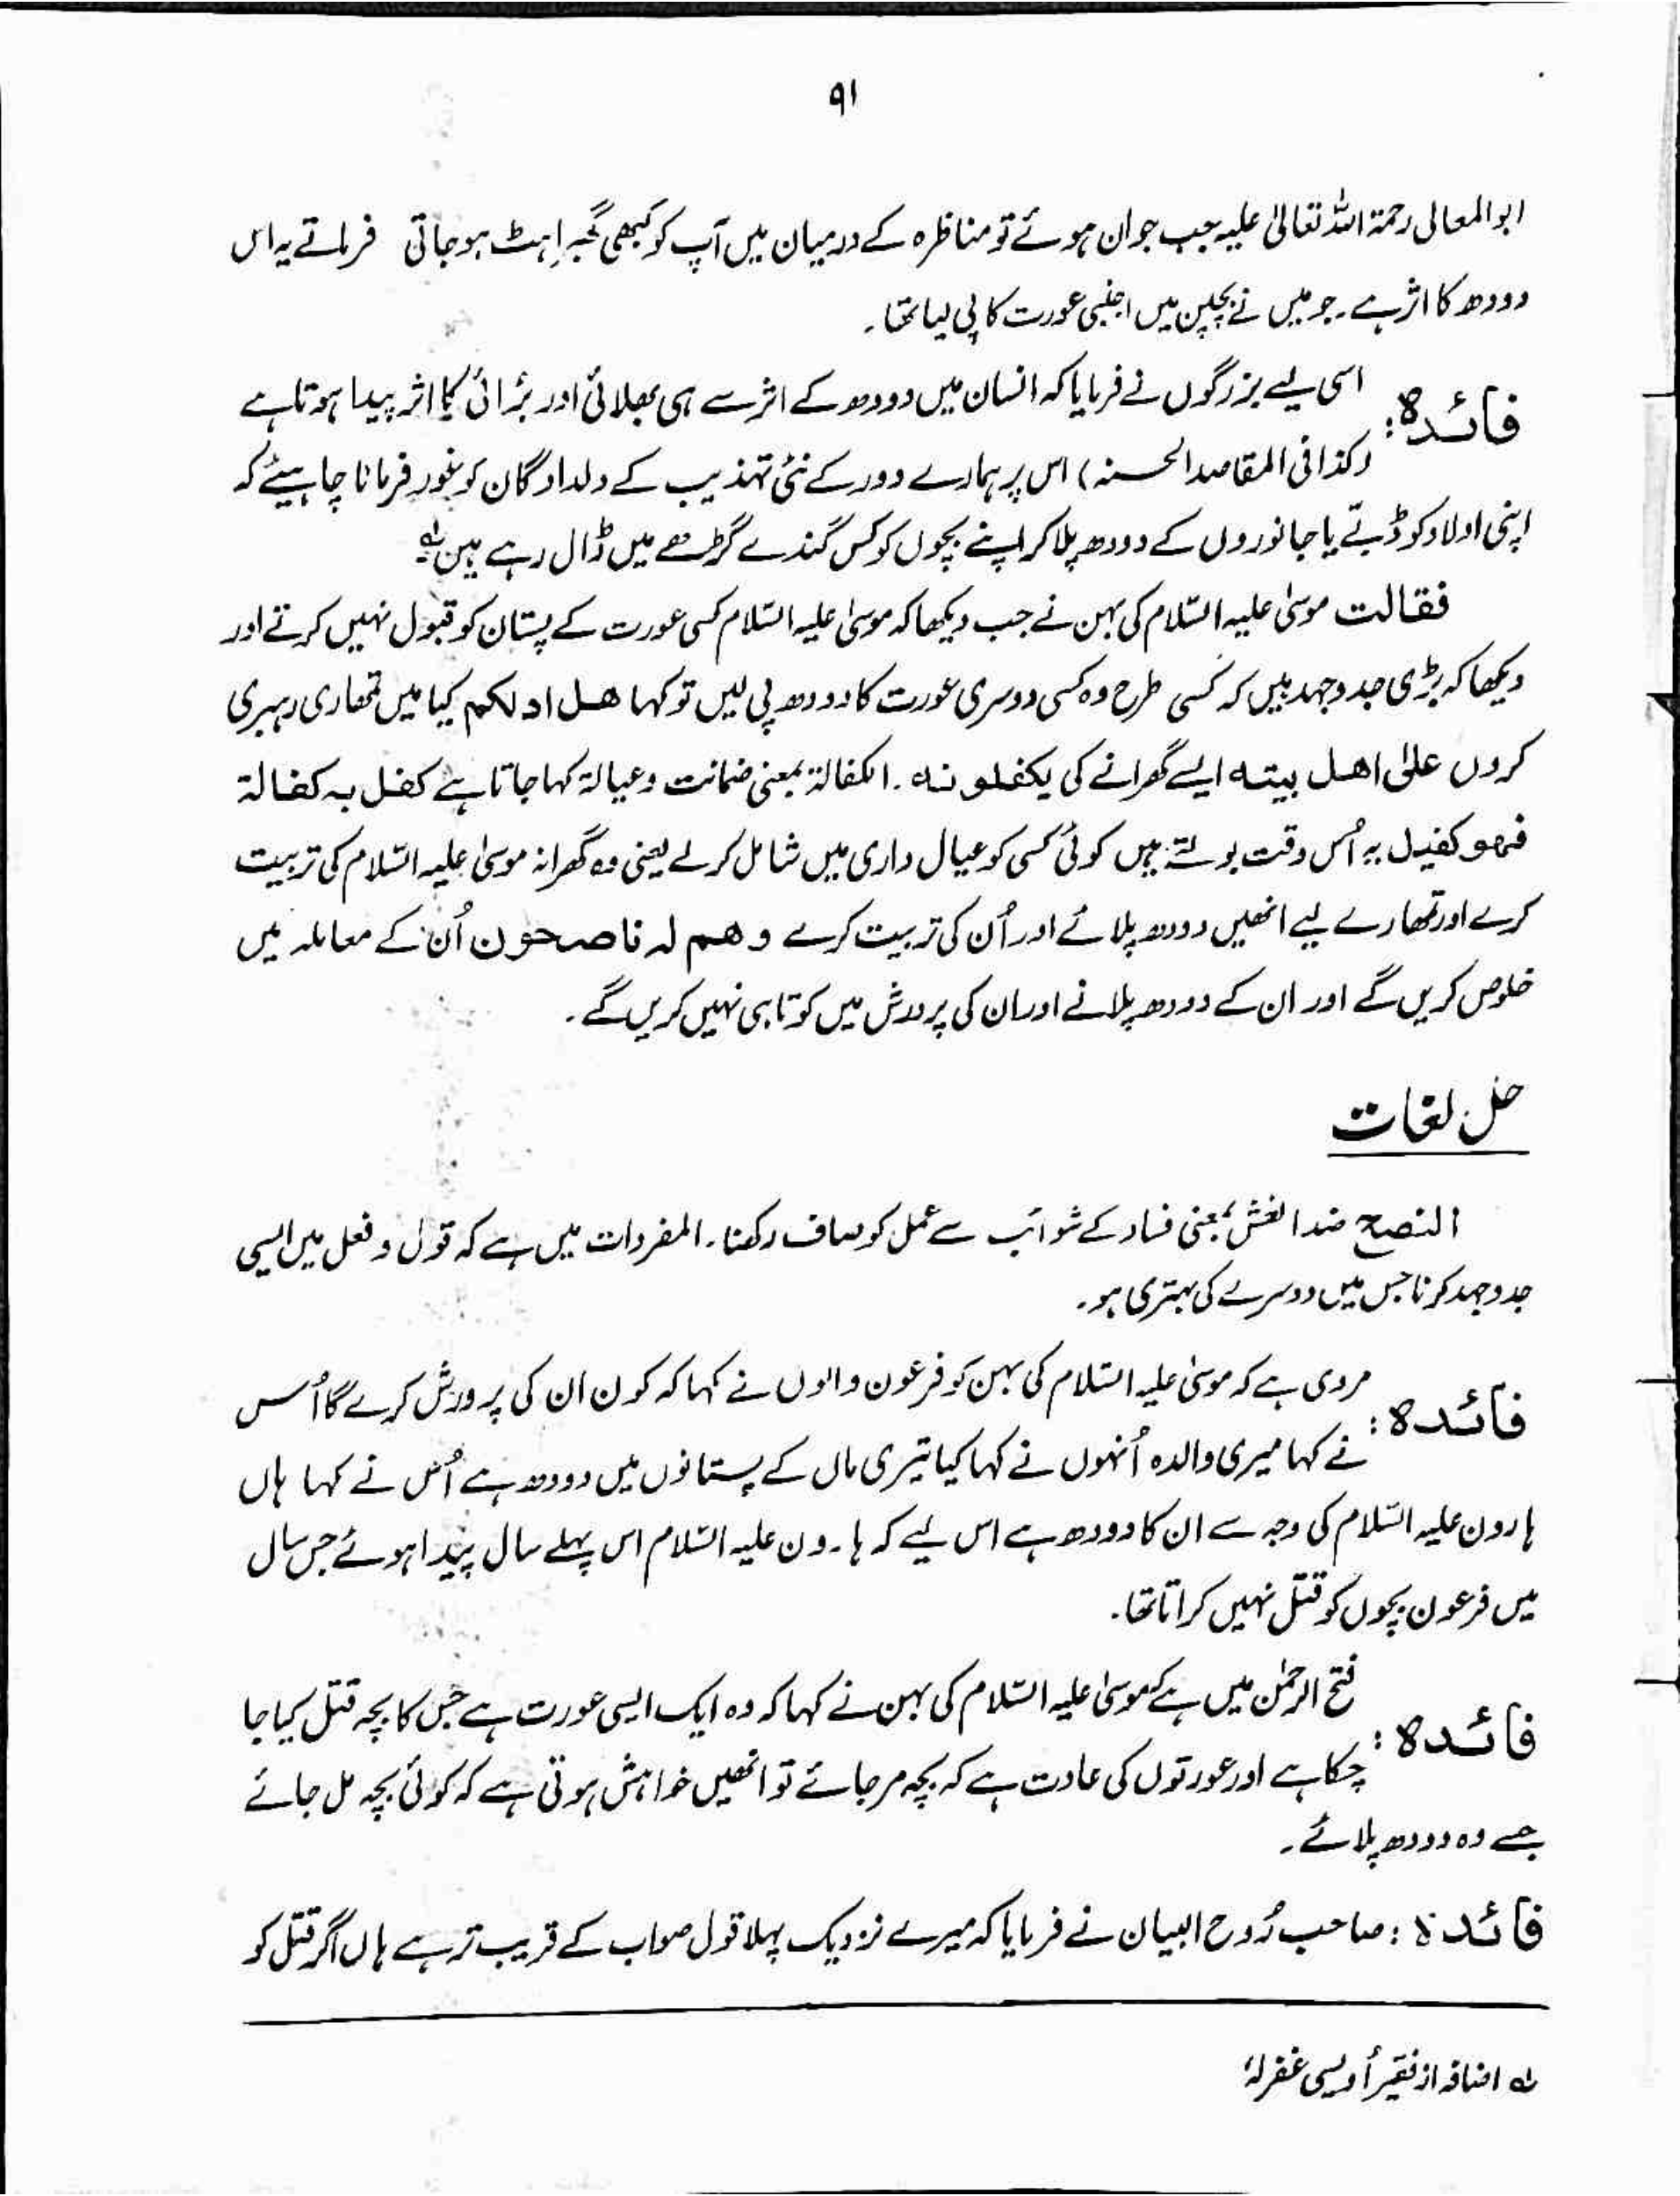 ۹۱
ابوالمعالی رحمۃ اللہ تعالیٰ علیہ جب جوان ہوئے تو مناظرہ کے درمیان میں آپ کو کبھی گھبراہٹ ہوجاتی فرماتے یہ اس
دودھ کا اثر ہے۔ جو میں نے بچپن میں اجنبی عورت کا پی لیا تھا۔
فائدہ: اسی لیے بزرگوں نے فرمایا کہ انسان میں دودھ کے اثر سے ہی بھلائی اور بُرائی کا اثر پیدا ہوتا ہے
(کذافی المقاصد الحسنہ) اس پر ہمارے دور کے نئی تہذیب کے دلدادگان کو غور فرمانا چاہیئے کہ
اپنی اولاد کو ڈبّے یا جانوروں کے دودھ پلا کر اپنے بچوں کو کس گندے گڑھے میں ڈال رہے ہیں؎
فقالت موسیٰ علیہ السّلام کی بہن نے جب دیکھا کہ موسیٰ علیہ السّلام کسی عورت کے پستان کو قبول نہیں کرتے اور
دیکھا کہ بڑی جدوجہد ہیں کہ کسی طرح وہ کسی دوسری عورت کا دودھ پی لیں تو کہا ھل ادلکم کیا میں تمھاری رہبری
کروں علیٰ اھل بیتہ ایسے گھرانے کی یکفلونہ۔ الکفالۃ بمعنی ضمانت وعیالۃ کہا جاتا ہے کفل بہ کفالۃ
فھو کفیل بہ اُس وقت بولتے ہیں کوئی کسی کو عیال داری میں شامل کرلے یعنی وہ گھرانہ موسیٰ علیہ السّلام کی تربیت
کرے اور تمھارے لیے انھیں دودھ پلائے اور اُن کی تربیت کرے وھم لہ ناصحون اُن کے معاملہ میں
خلوص کریں گے اور ان کے دودھ پلانے اور ان کی پرورش میں کوتاہی نہیں کریں گے۔
حل لغات
النصح ضد الغش بمعنی فساد کے شوائب سے عمل کو صاف رکھنا۔ المفردات میں ہے کہ قول وفعل میں ایسی
جدوجہد کرنا جس میں دوسرے کی بہتری ہو۔
فائدہ: مروی ہے کہ موسیٰ علیہ السّلام کی بہن کو فرعون والوں نے کہا کہ کون ان کی پرورش کرے گا اُس
نے کہا میری والدہ اُنہوں نے کہا کیا تیری ماں کے پستانوں میں دودھ ہے اُس نے کہا ہاں
ہارون علیہ السّلام کی وجہ سے ان کا دودھ ہے اس لیے کہ ہارون علیہ السّلام اس پہلے سال پیدا ہوئے جس سال
میں فرعون بچوں کو قتل نہیں کراتا تھا۔
فائدہ: فتح الرحمٰن میں ہے کہ موسیٰ علیہ السّلام کی بہن نے کہا کہ وہ ایک ایسی عورت ہے جس کا بچہ قتل کیا جا
چکا ہے اور عورتوں کی عادت ہے کہ بچہ مرجائے تو انھیں خواہش ہوتی ہے کہ کوئی بچہ مل جائے
جسے وہ دودھ پلائے۔
فائدہ: صاحب رُوح البیان نے فرمایا کہ میرے نزدیک پہلا قول صواب کے قریب تر ہے ہاں اگر قتل کو
؎ اضافہ از فقیر اُویسی غفرلہٗ